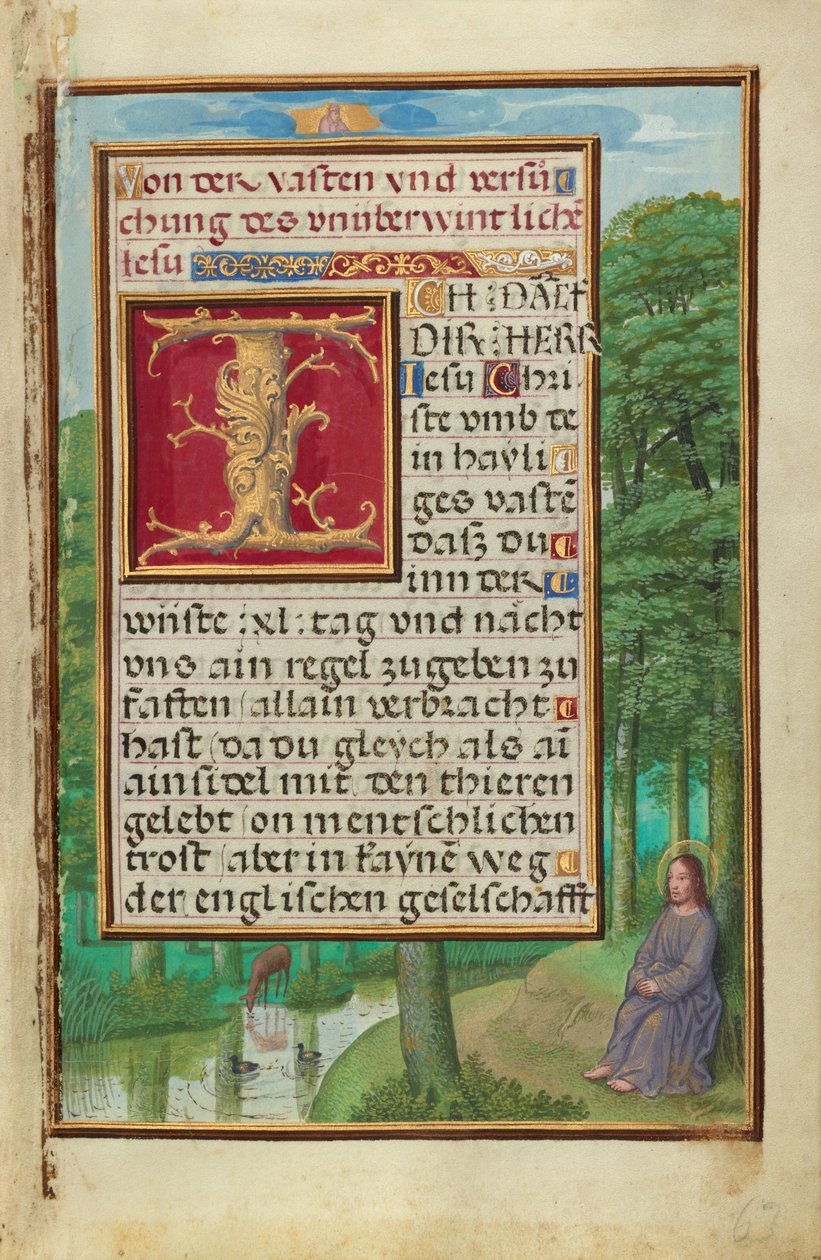 Von der vasten vnd versuͦ
chung des vnüberwintlichē
Iesu
I CH : DAͤCK
DIR : HERR
Iesu Chri
ste vmb te
in hayli
ges vastē
dasz du
inn der
wüste : xl : tag vnd nächt
vns ain regel zugeben zu
fasten / allain verbracht
hast / da du gleych als aī
ainsidel mit den thieren
gelebt / on mentschlichen
trost / aber in kaynē weg
der englischen geselschafft
63